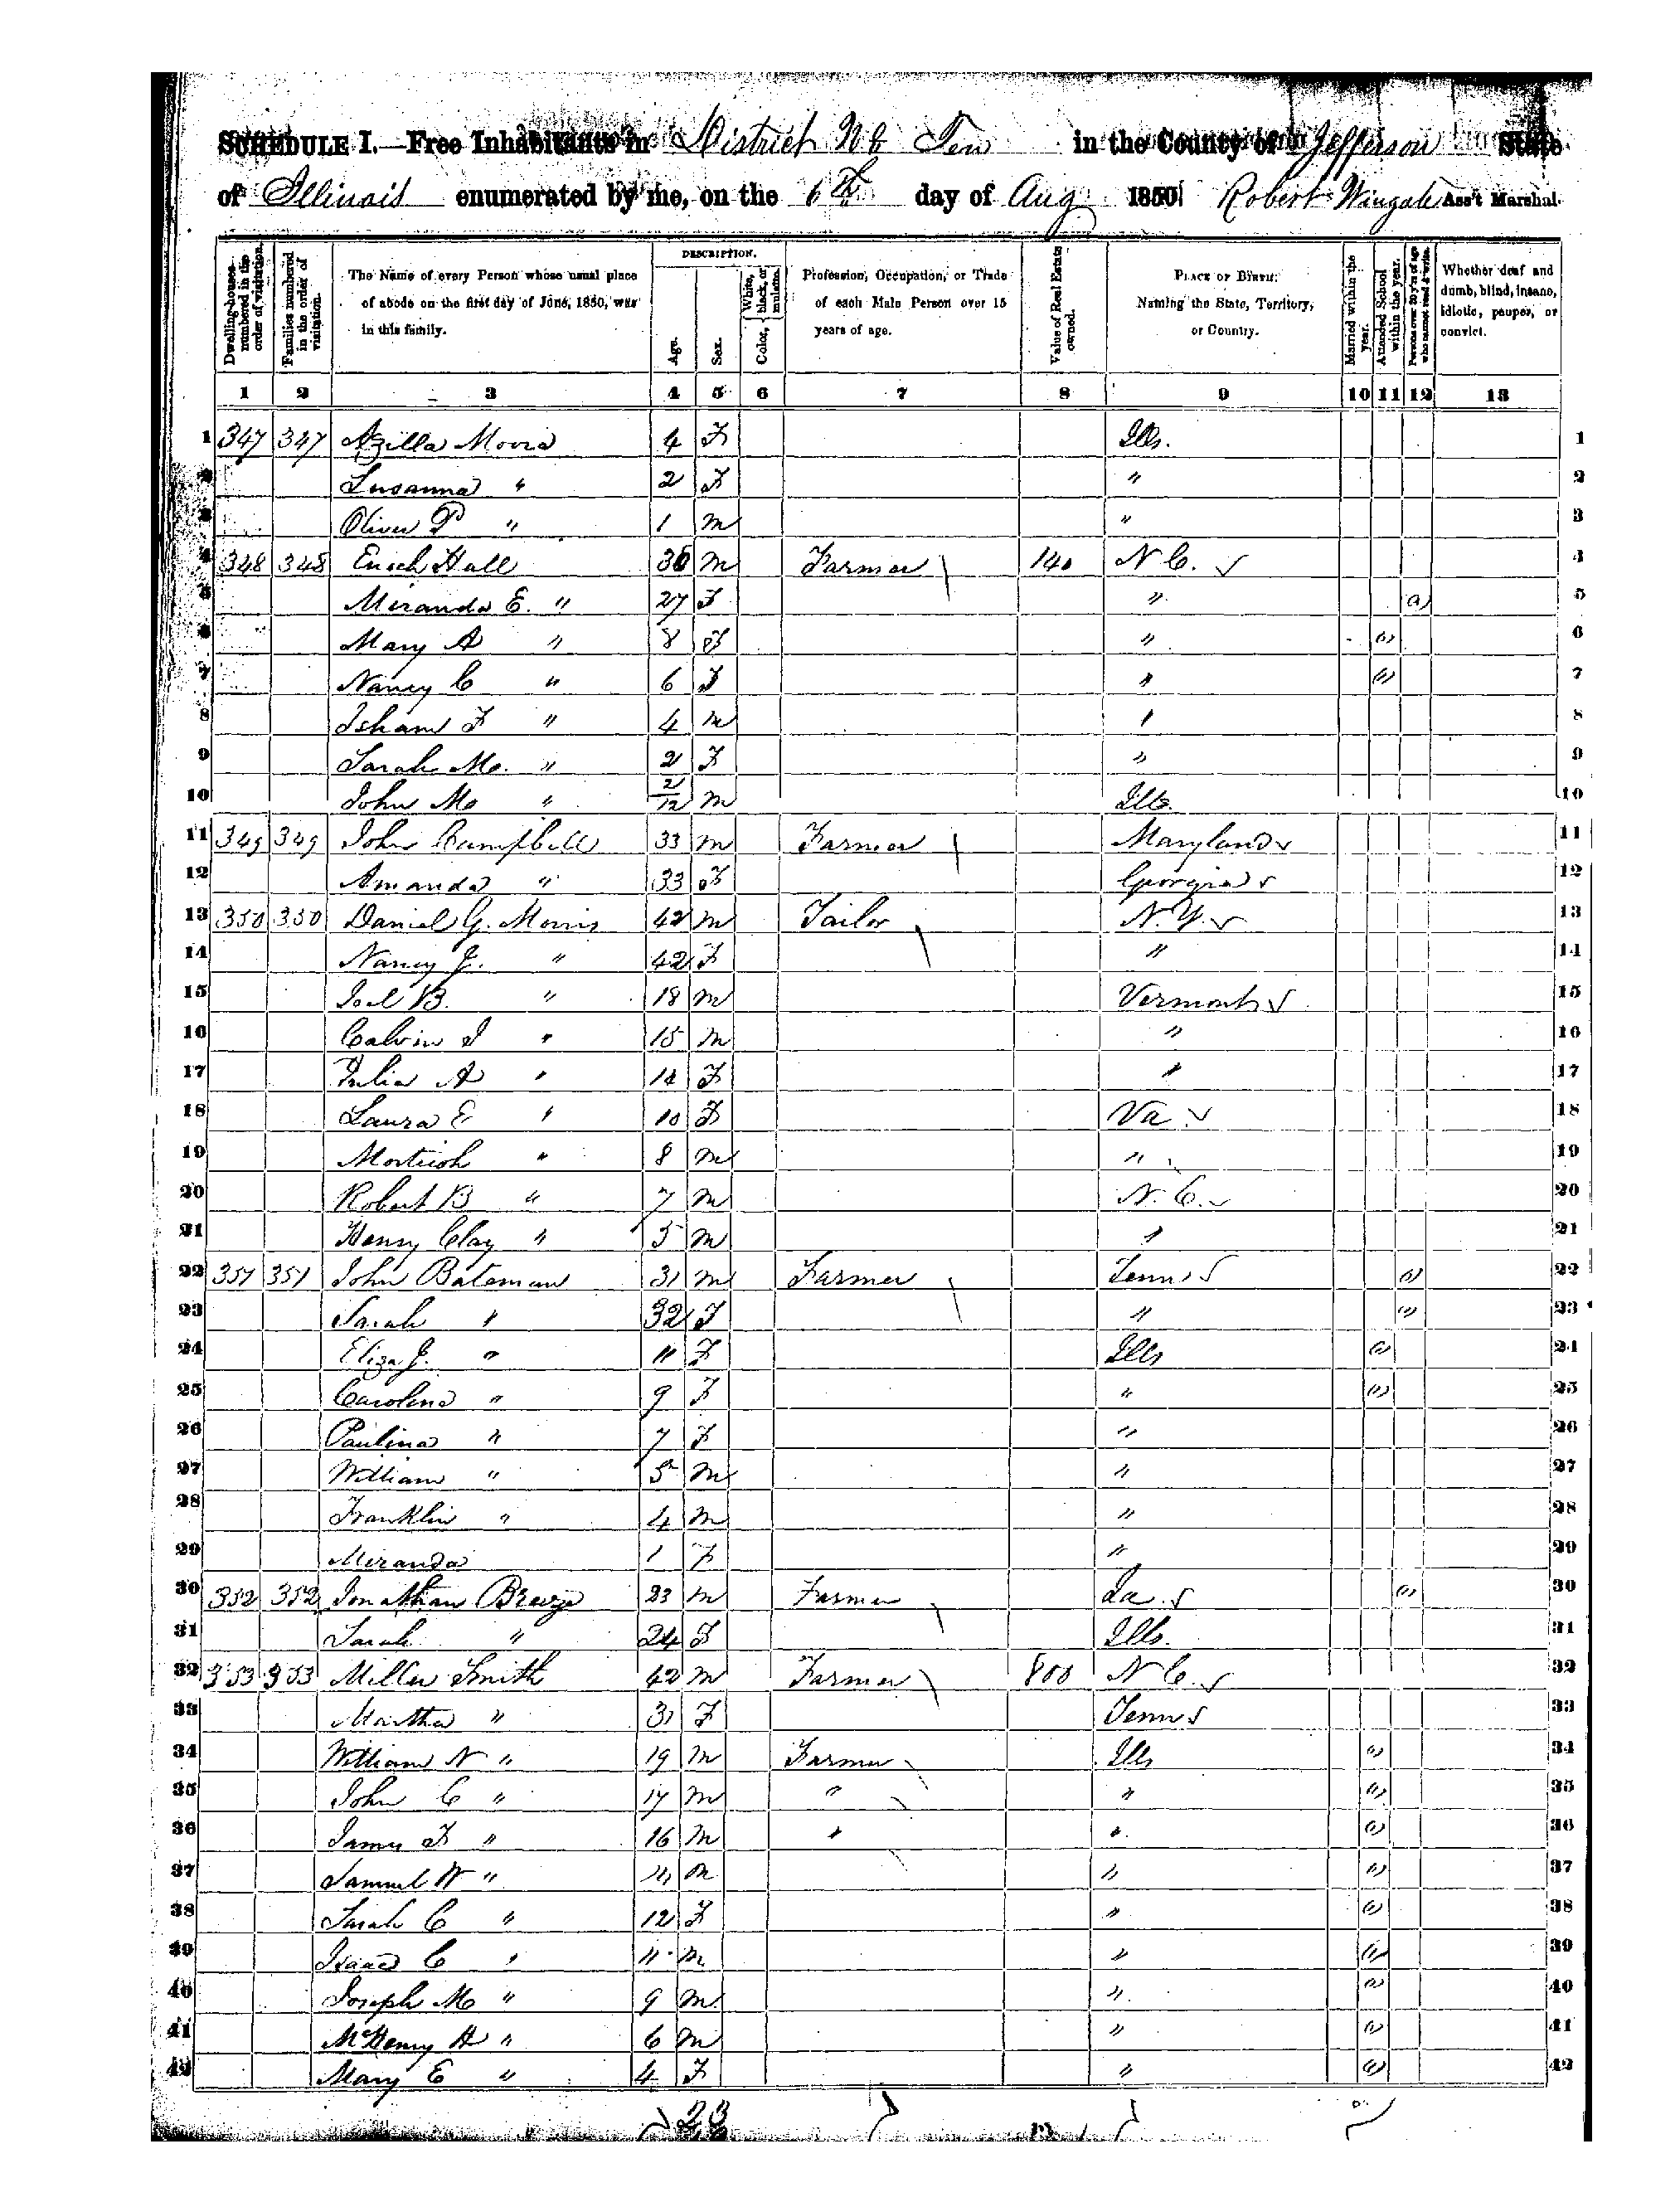 SCHEDULE I.—Free Inhabitants in District No Ten in the County of Jefferson State
of Illinois enumerated by me, on the 6th day of Aug 1850. Robert Wingate Ass't Marshal.
Dwelling-houses numbered in the order of visitation.
Families numbered in the order of visitation.
The Name of every Person whose usual place of abode on the first day of June, 1850, was in this family.
DESCRIPTION.
Age.
Sex.
Color, White, black, or mulatto.
Profession, Occupation, or Trade of each Male Person over 15 years of age.
Value of Real Estate owned.
PLACE OF BIRTH. Naming the State, Territory, or Country.
Married within the year.
Attended School within the year.
Persons over 20 y'rs of age who cannot read & write.
Whether deaf and dumb, blind, insane, idiotic, pauper, or convict.
1 2 3 4 5 6 7 8 9 10 11 12 13
1 347 347 Azilla Moore 4 F Ills. 1
2 Susanna " 2 F " 2
3 Oliver P " 1 M " 3
4 348 348 Enoch Hall 36 M Farmer 140 N C. 4
5 Miranda E. " 27 F " (1) 5
6 Mary A " 8 F " (1) 6
7 Nancy C " 6 F " (1) 7
8 Isham F " 4 M " 8
9 Sarah M. " 2 F " 9
10 John M " 2/12 M Ills. 10
11 349 349 John Campbell 33 M Farmer Maryland 11
12 Amanda " 33 F Georgia 12
13 350 350 Daniel G. Morris 42 M Tailor N. Y. 13
14 Nancy J. " 42 F " 14
15 Joel B. " 18 M Vermont 15
16 Calvin I " 15 M " 16
17 Julia A " 14 F " 17
18 Laura E " 10 F Va 18
19 " 8 M " 19
20 Robert B " 7 M N. C. 20
21 Henry Clay " 5 M " 21
22 351 351 John Bateman 31 M Farmer Tenn 22
23 Sarah " 32 F " (1) 23
24 Eliza J. " 11 F Ills (1) 24
25 Caroline " 9 F " (1) 25
26 Paulina " 7 F " 26
27 William " 5 M " 27
28 Franklin " 4 M " 28
29 Miranda 1 F " 29
30 352 352 Jonathan Breeze 23 M Farmer Ia. (1) 30
31 Sarah " 24 F Ills. 31
32 353 353 Miller Smith 42 M Farmer 800 N C. 32
33 Martha " 31 F Tenn 33
34 William N " 19 M Farmer Ills (1) 34
35 John C " 17 M " " (1) 35
36 James F " 16 M " " (1) 36
37 Samuel W " 14 M " (1) 37
38 Sarah C " 12 F " (1) 38
39 Isaac C " 11 M " (1) 39
40 Joseph M " 9 M " (1) 40
41 McHenry H " 6 M " (1) 41
42 Mary E " 4 F " (1) 42
23